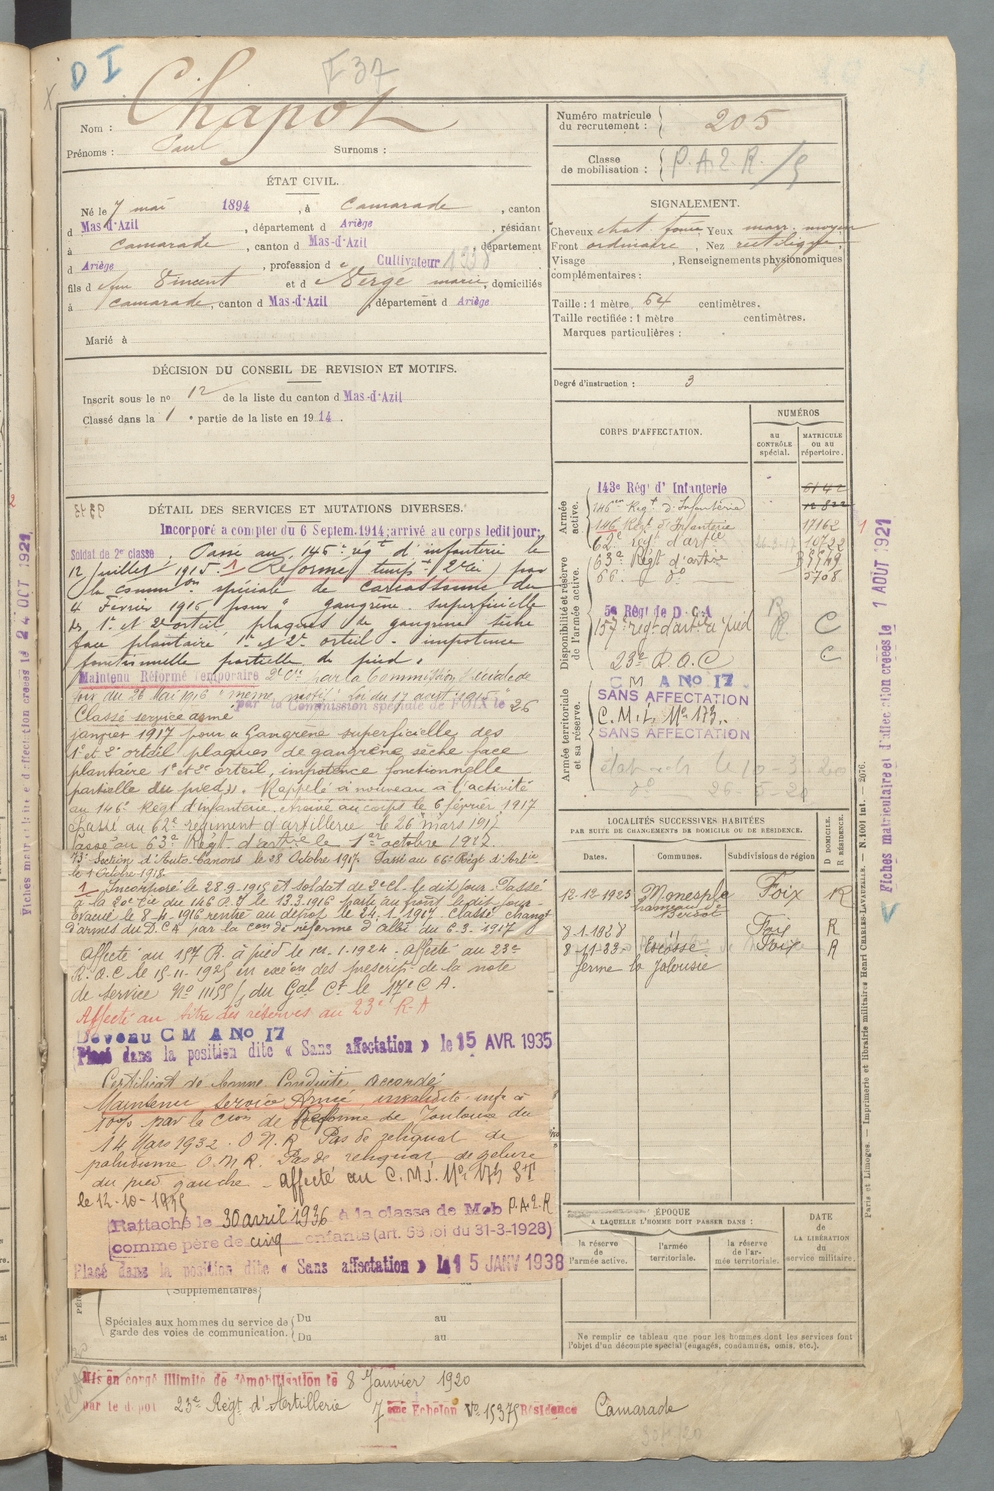 D I
F 37
Nom : Chapot
Prénoms : Paul Surnoms :
Numéro matricule du recrutement : 205
Classe de mobilisation : P.A.2.R. /
ÉTAT CIVIL.
Né le 7 mai 1894, à Camarade, canton
d Mas-d'Azil, département d Ariège, résidant
à Camarade, canton d Mas-d'Azil département
d Ariège, profession de Cultivateur 1338
fils d feu Vincent et d Sergé marie, domiciliés
à Camarade, canton d Mas-d'Azil département d Ariège
Marié à
SIGNALEMENT.
Cheveux chat. foncé Yeux marr. moyen
Front ordinaire, Nez rectiligne,
Visage , Renseignements physionomiques
complémentaires :
Taille : 1 mètre 64 centimètres.
Taille rectifiée : 1 mètre centimètres.
Marques particulières :
DÉCISION DU CONSEIL DE REVISION ET MOTIFS.
Inscrit sous le no 12 de la liste du canton d Mas-d'Azil
Classé dans la 1e partie de la liste en 1914.
Degré d'instruction : 3
CORPS D'AFFECTATION.
NUMÉROS
AU CONTRÔLE spécial.
MATRICULE ou au répertoire.
Armée active.
143e Rég' d' Infanterie
146e Régt d'Infanterie 17162
62e Régt d'artie
63e Régt d'artie
66e do 5708
Disponibilité et réserve de l'armée active.
5e Rég' de D.C.A R
157e régt d'art à pied R C
23e D.O.C C
Armée territoriale et sa réserve.
C M A No 17
SANS AFFECTATION
C.M.I. No 173.
SANS AFFECTATION
le 10-3-20
do 26-5-20
DÉTAIL DES SERVICES ET MUTATIONS DIVERSES.
Incorporé a compter du 6 Septem. 1914; arrivé au corps ledit jour;
Soldat de 2e classe. Passé au 146e régt d'infanterie le
12 juillet 1915. 1 Réformé tempre 2e cie par
la common spéciale de Carcassonne du
4 Février 1916 pour " gangrène superficielle
des 1er et 2e orteil plaques de gangrène sèche
face plantaire 1er et 2e orteil - impotence
fonctionnelle partielle du pied.
Maintenu Réformé Temporaire 2e Cie par la Commission spéciale de
Foix du 26 Mai 1916 "même motif" loi du 17 août 1915
Classé service armé par la Commission spéciale de FOIX le 26
janvier 1917 pour "Gangrène superficielle des
1er et 2e orteil plaques de gangrène sèche face
plantaire 1er et 2e orteil, impotence fonctionnelle
partielle du pied". Rappelé à nouveau à l'activité
au 146e Régt d'Infanterie. Arrivé au corps le 6 février 1917
Passé au 62e régiment d'artillerie le 26 mars 1917
Passé au 63e Régt d'artie le 1er octobre 1917.
73e Section d'Auto-Canons le 28 Octobre 1917. Passé au 66e Régt d'Artie
le 1 Octobre 1918.
1 Incorporé le 28.9.1915 et soldat de 2e Cl. le dit jour. Passé
à la 20e Cie du 146 R.I le 13.3.1916 parti au front le dit jour.
évacué le 8.4.1916 rentré au dépôt le 24.1.1917. Classé changt
d'armes du D.C.A par la Con de réforme d'Albi du 6.3.1917
Affecté au 157 R. à pied le 1er.1.1924. Affecté au 23e
R.O.C le 15.11.1925 en exéon des prescript. de la note
de service No 11155/ du Gal Ct le 17e C A.
Affecté au titre des réserves au 23e R.A
Devenu C M A No 17
Placé dans la position dite « Sans affectation » le 15 AVR. 1935
Certificat de bonne Conduite accordé
Maintenu Service Armé, invalidité infe à
10% par la Cion de Réforme de Toulouse du
14 Mars 1932. O.N.R Pas de reliquat de
paludisme O.N.R. Pas de reliquat de gelure
du pied gauche - affecté au C.M.I. No 173 ST
le 12-10-1935
Rattaché le 30 avril 1936 à la classe de Mob P.A.2.R
comme père de cinq enfants (art. 58 loi du 31-3-1928)
Placé dans la position dite « Sans affectation » le 15 JANV 1938
LOCALITÉS SUCCESSIVES HABITÉES
PAR SUITE DE CHANGEMENTS DE DOMICILE OU DE RÉSIDENCE.
Dates. Communes. Subdivisions de région D DOMICILE. R RÉSIDENCE.
12-12-1925 Monesple Foix R
8-1-1928 " Foix R
8-11-33 Escosse Foix R
ferme la Jalousie
ÉPOQUE
A LAQUELLE L'HOMME DOIT PASSER DANS :
la réserve de l'armée active.
l'armée territoriale.
la réserve de l'armée territoriale.
DATE DE LA LIBÉRATION du service militaire.
Ne remplir ce tableau que pour les hommes dont les services font
l'objet d'un décompte spécial (engagés, condamnés, omis, etc.).
Supplémentaires
Spéciales aux hommes du service de garde des voies de communication.
Du au
Du au
Mis en congé illimité de démobilisation le 8 Janvier 1920
par le dépôt 23e Régt d'Artillerie 7ème Echelon No 15375 Résidence Camarade
Fiches matricule et d'affection créées le 24 OCT 1921
Fiches matriculaire et d'affection créées le 1 AOUT 1921
Paris et Limoges. — Imprimerie et librairie militaires Henri CHARLES-LAVAUZELLE. — N. 1001 int. — 2076.